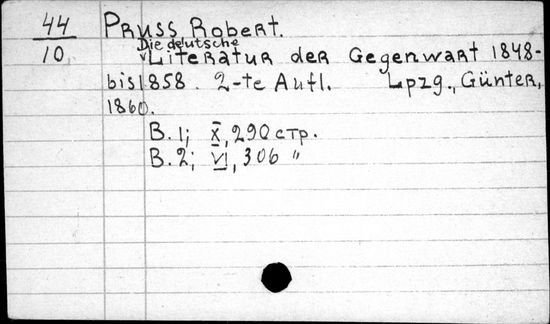 44
10
Pruss Robert.
Die deutsche
Literatur der Gegenwart 1848-
bis 1858. 2-te Aufl. Lpzg., Günter,
1860.
B. 1; X, 290 стр.
B. 2; VI, 306 "